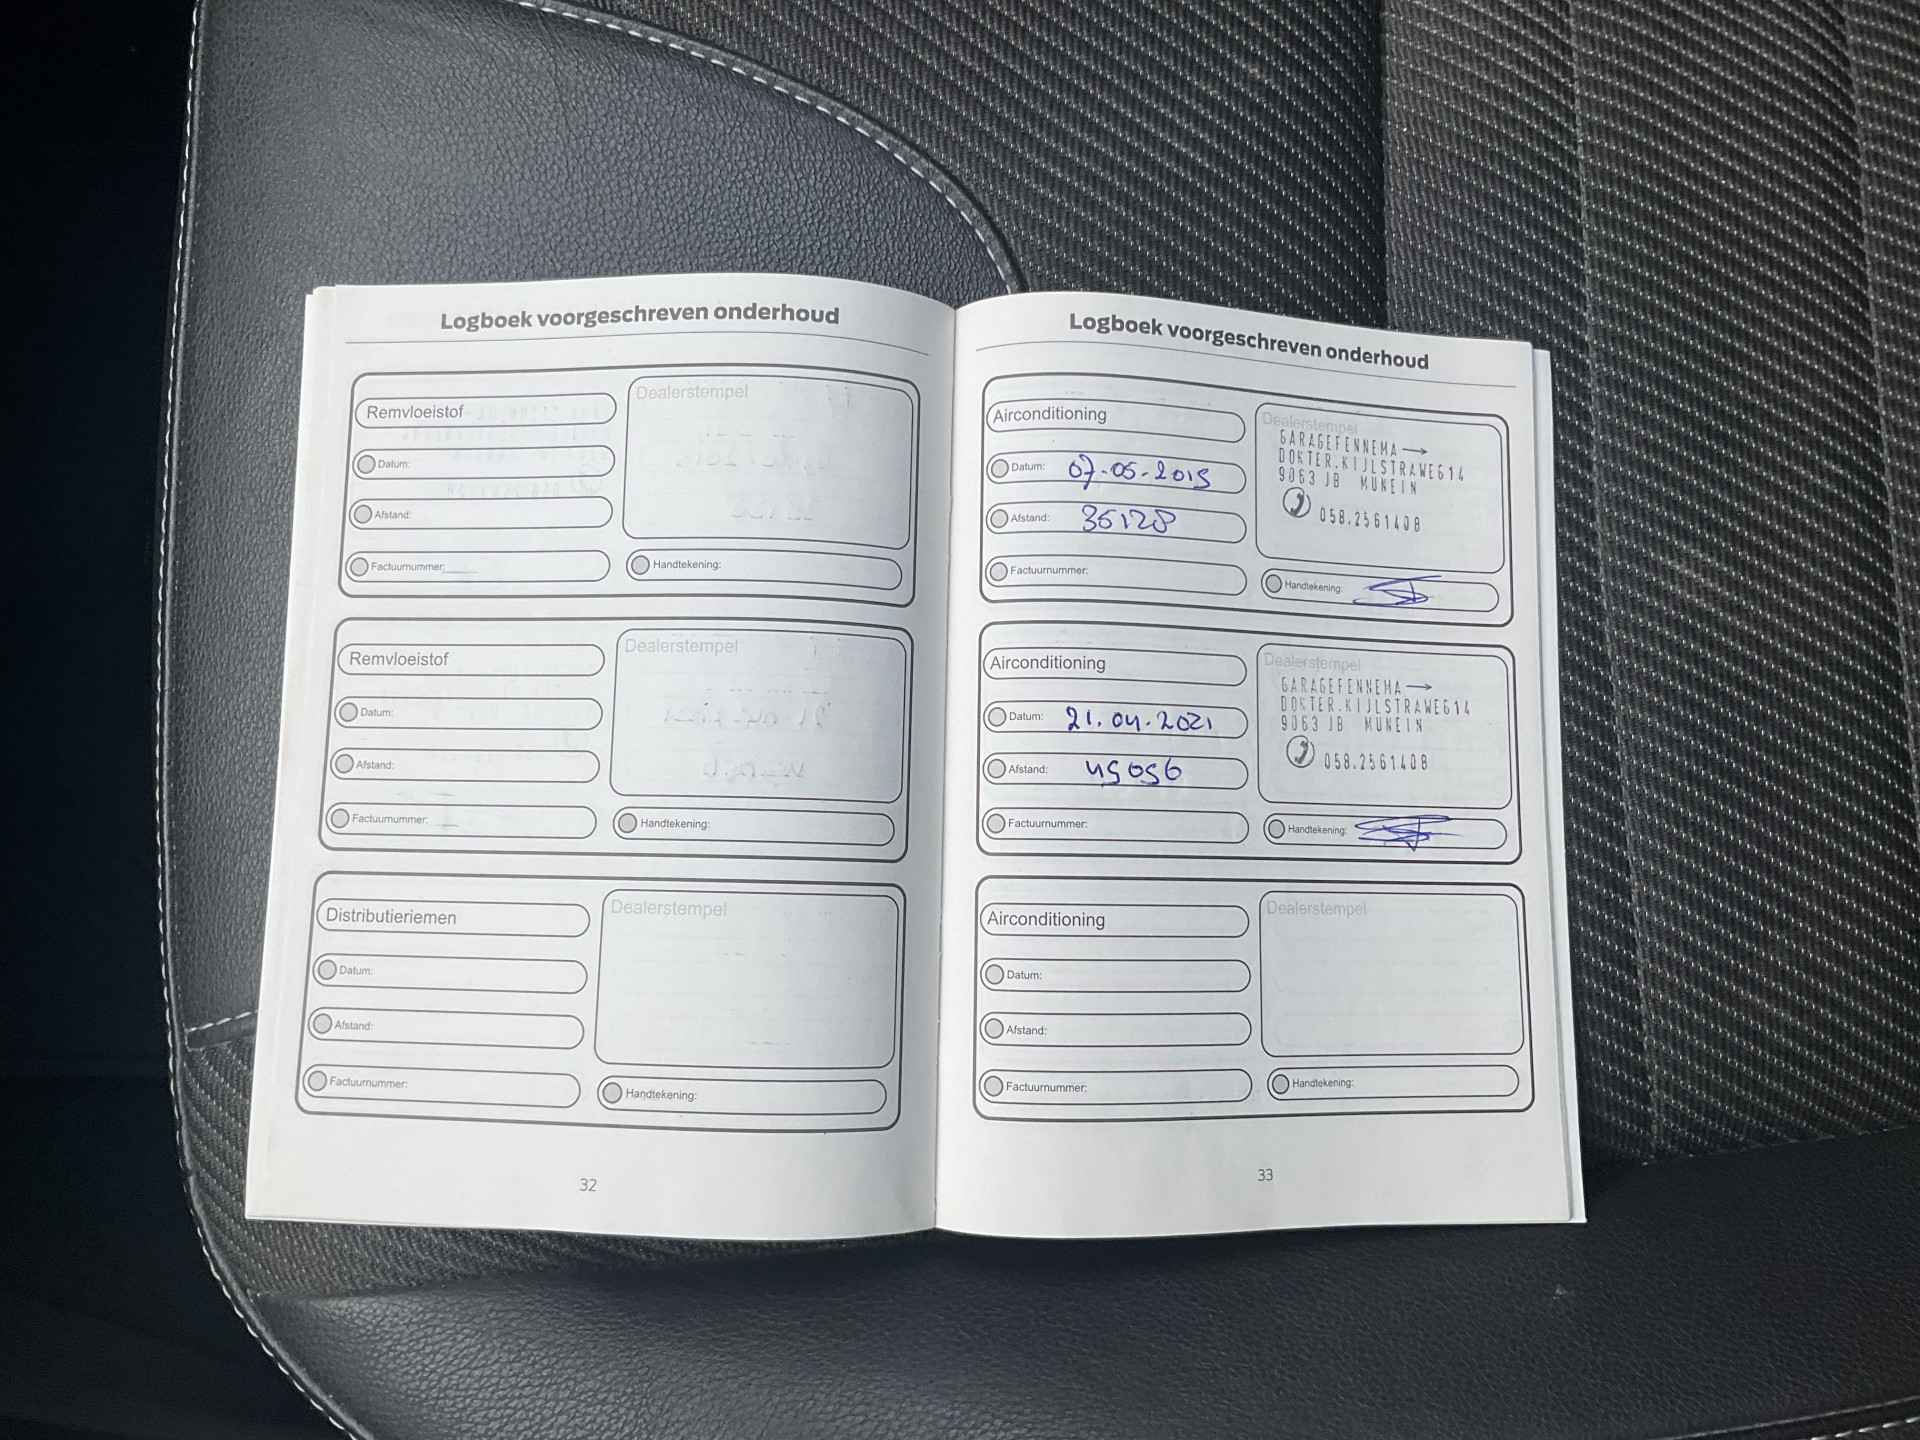 Logboek voorgeschreven onderhoud
Remvloeistof
Dealerstempel
Datum:
Afstand:
Factuurnummer:
Handtekening:
Remvloeistof
Dealerstempel
Datum:
Afstand:
Factuurnummer:
Handtekening:
Distributieriemen
Dealerstempel
Datum:
Afstand:
Factuurnummer:
Handtekening:
32
Logboek voorgeschreven onderhoud
Airconditioning
Dealerstempel
GARAGEFENNEMA →
DOKTER.KIJLSTRAWEG14
9063 JB MUNEIN
058.2561408
Datum: 07-05-2019
Afstand: 36128
Factuurnummer:
Handtekening:
Airconditioning
Dealerstempel
GARAGEFENNEMA →
DOKTER.KIJLSTRAWEG14
9063 JB MUNEIN
058.2561408
Datum: 21.04.2021
Afstand: 49096
Factuurnummer:
Handtekening:
Airconditioning
Dealerstempel
Datum:
Afstand:
Factuurnummer:
Handtekening:
33